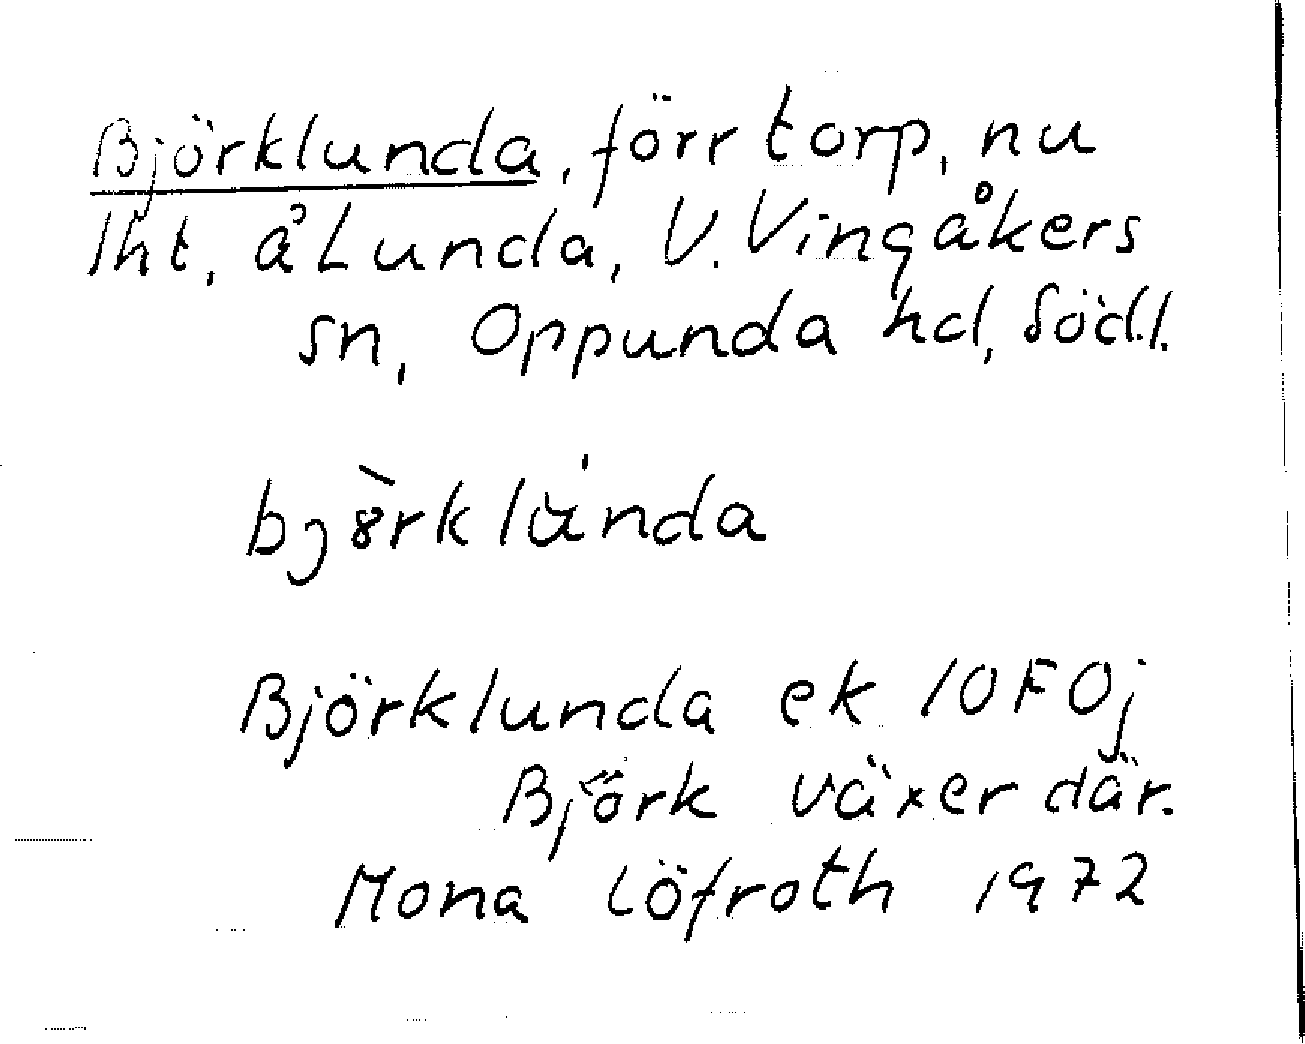 Björklunda, förr torp, nu
lht, å Lunda, V. Vingåkers
sn, Oppunda hd, Södl.
bjö̀rklùnda
Björklunda ek 10F0j
Björk växer där.
Mona Löfroth 1972